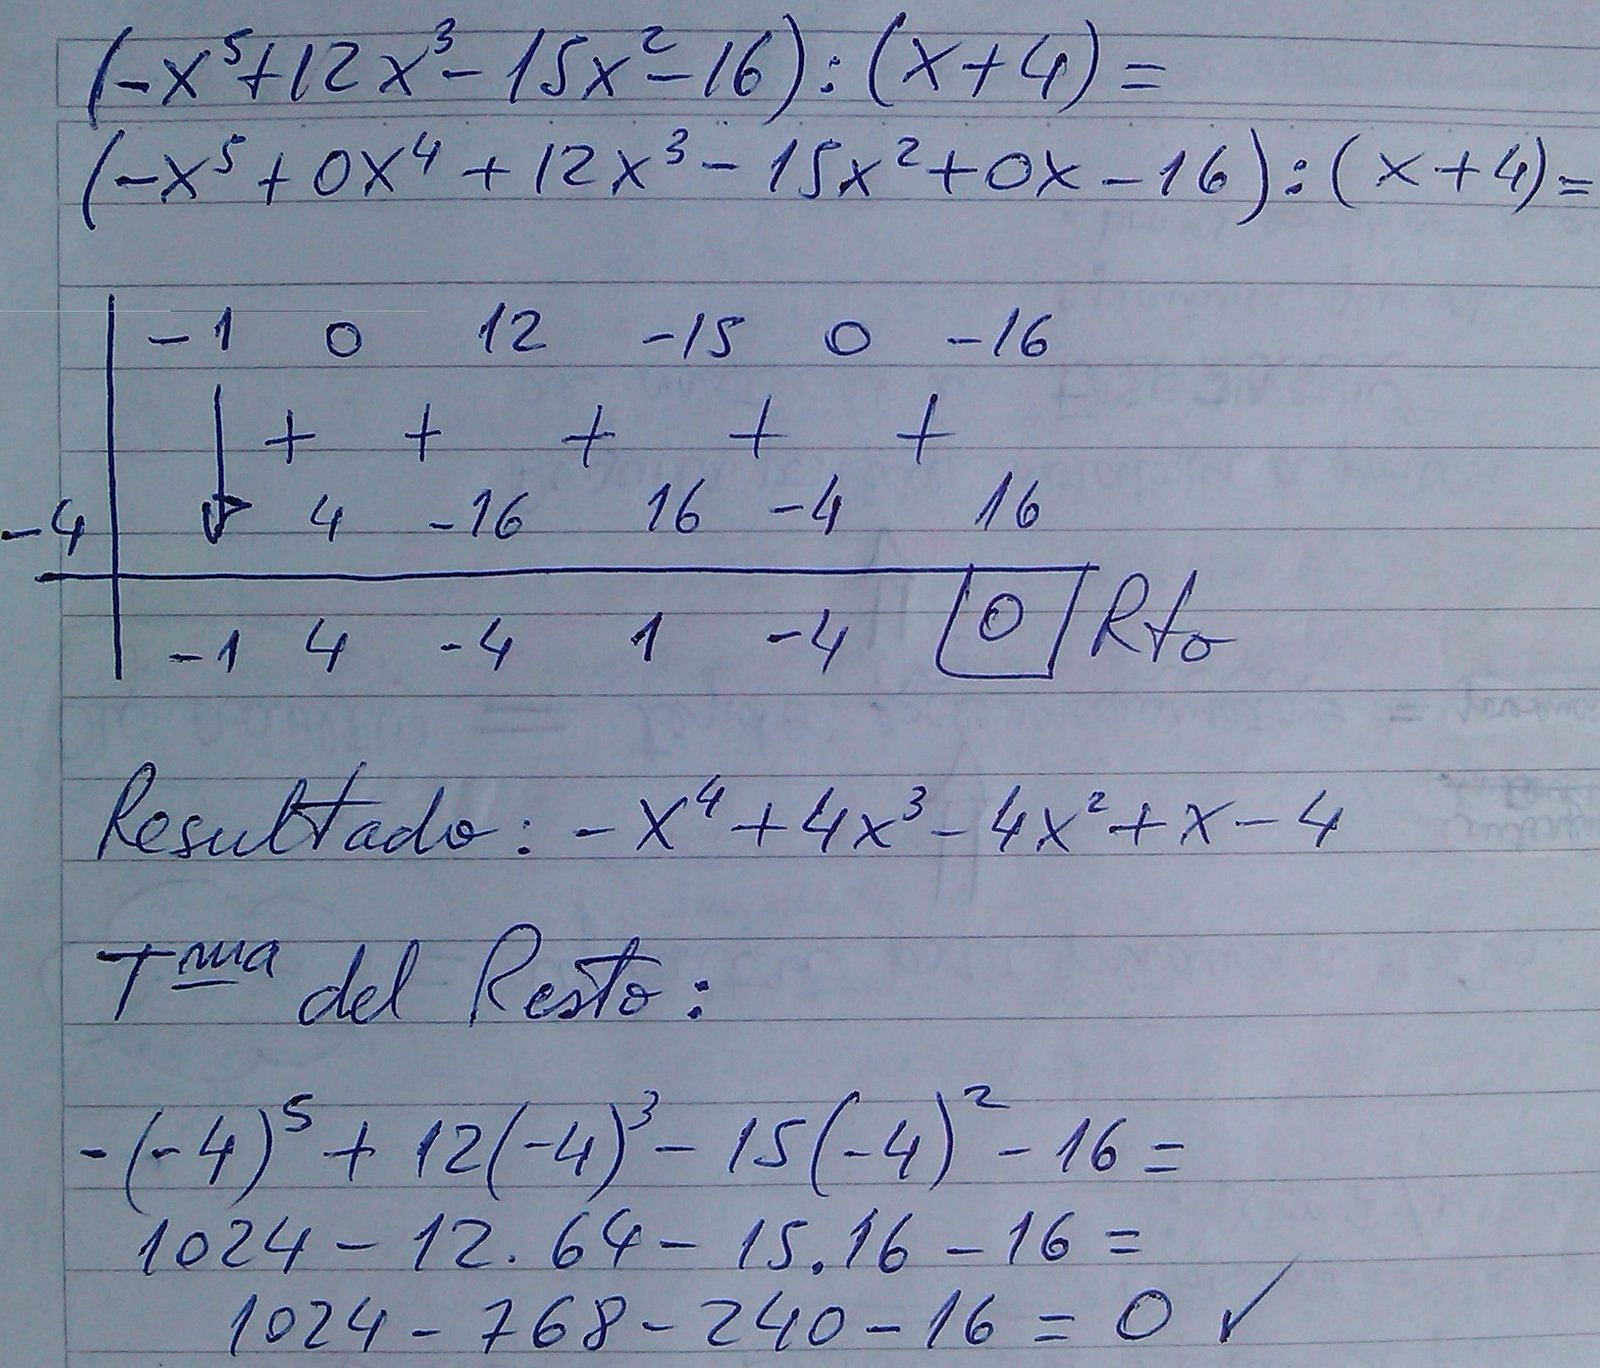 (-x⁵+12x³-15x²-16):(x+4)=
(-x⁵+0x⁴+12x³-15x²+0x-16):(x+4)=
-1 0 12 -15 0 -16
+ + + + +
-4 4 -16 16 -4 16
-1 4 -4 1 -4 0 Rto
Resultado: -x⁴+4x³-4x²+x-4
Tma del Resto:
-(-4)⁵+12(-4)³-15(-4)²-16=
1024-12.64-15.16-16=
1024-768-240-16=0 ✓